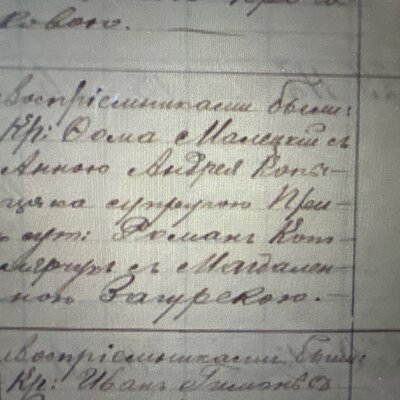 ковою.
Воспріемниками были:
Кр: Ѳома Малецкій съ
Анною Андрея Копы-
цяка супругою При-
сут: Романъ Кот-
лярчукъ съ Магдален-
ною Загурскою.
Воспріемниками были:
Кр: Иванъ